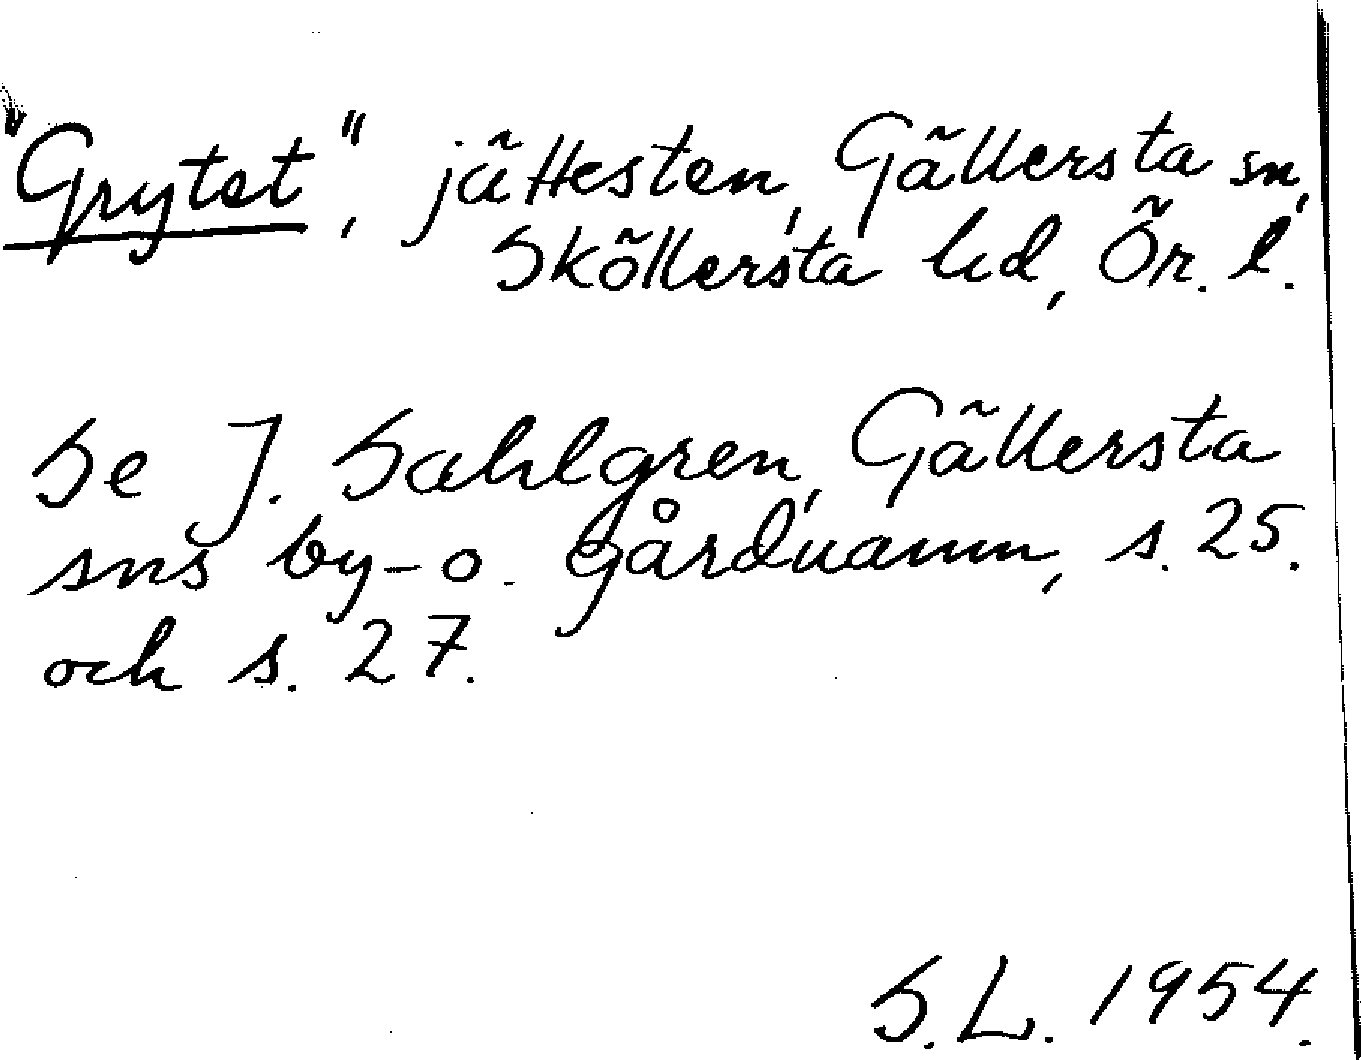 "Grytet", jättesten, Gällersta sn,
Sköllersta hd, Ör. l.
Se J. Sahlgren, Gällersta
sns by- o. gårdnamn, s. 25.
och s. 27.
S. L. 1954.